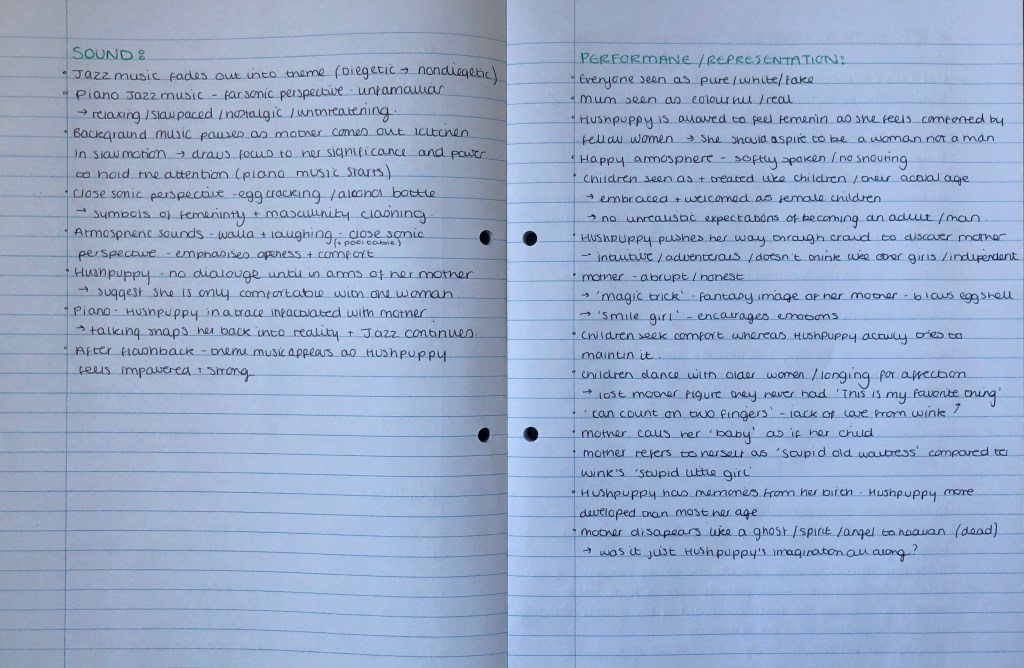 SOUND:
• Jazz music fades out into theme (Diegetic → nondiegetic)
• Piano Jazz music - far sonic perspective - unfamaliar
→ relaxing / slow paced / nostalgic / unthreatening.
• Background music pauses as mother comes out kitchen
in slow motion → draws focus to her significance and power
to hold the attention (piano music starts)
• Close sonic perspective - egg cracking / alcohol bottle
→ symbols of femeninty + masculinity clashing.
• Atmospheric sounds - walla + laughing - close sonic
(+ pool table)
perspective - emphasises openess + comfort
• Hushpuppy - no dialouge until in arms of her mother
→ suggest she is only comfortable with one woman
• Piano - Hushpuppy in a trace infactuated with mother
→ talking snaps her back into reality + Jazz continues.
• After flashback - theme music appears as Hushpuppy
feels impowered + strong
PERFORMANE / REPRESENTATION:
• Everyone seen as pure / white / fake
• Mum seen as colourful / real
• Hushpuppy is allowed to feel femenin as she feels comforted by
fellow women → she should aspire to be a woman not a man
• Happy atmosphere - softly spoken / no shouting
• Children seen as + treated like children / their actual age
→ embraced + welcomed as female children
→ no unrealistic expectations of becoming an adult / man
• Hushpuppy pushes her way through crowd to discover mother
- intuitive / adventerous / doesn't think like other girls / independent
• mother - abrupt / honest
→ 'magic trick' - fantasy image of her mother - blows eggshell
→ 'smile girl' - encourages emotions
• Children seek comfort whereas Hushpuppy activly tries to
maintin it.
• Children dance with older women / longing for affection
→ lost mother figure they never had 'This is my favorite thing'
• 'can count on two fingers' - lack of love from wink ↑
• mother calls her 'baby' as if her child
• mother refers to herself as 'stupid old waitress' compared to
wink's 'stupid little girl'
• Hushpuppy has memories from her birth - Hushpuppy more
developed than most her age
• mother disapears like a ghost / spirit / angel to heavan (dead)
→ was it just Hushpuppy's imagination all along?